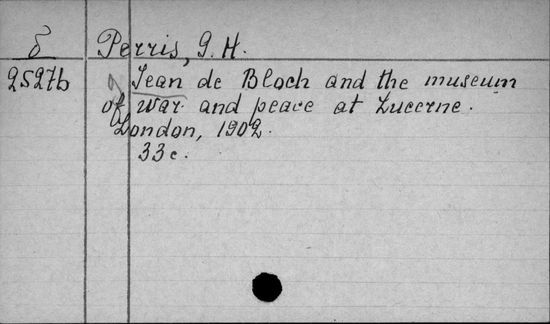 δ Perris, G. H.
2527b Jean de Bloch and the museum
of war and peace at Lucerne.
London, 1902.
33c.